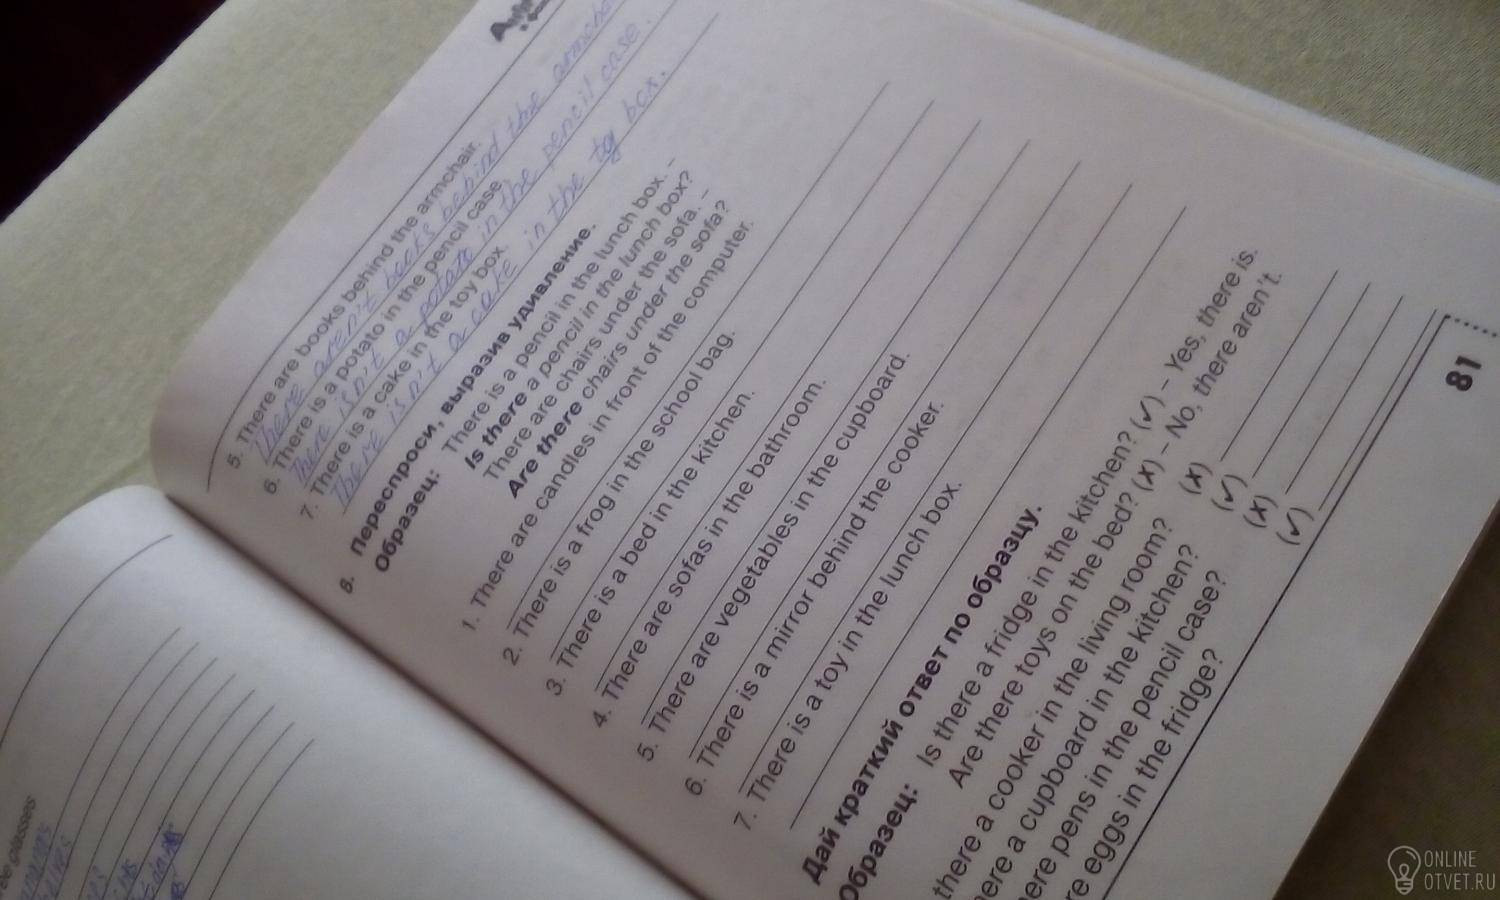 5. There are books behind the armchair.
There aren't books behind the
6. There is a potato in the pencil case.
There isn't a potato in the pencil case.
7. There is a cake in the toy box.
There isn't a cake in the toy box.
в. Переспроси, выразив удивление.
Образец: There is a pencil in the lunch box. –
Is there a pencil in the lunch box?
There are chairs under the sofa. –
Are there chairs under the sofa?
1. There are candles in front of the computer.
2. There is a frog in the school bag.
3. There is a bed in the kitchen.
4. There are sofas in the bathroom.
5. There are vegetables in the cupboard.
6. There is a mirror behind the cooker.
7. There is a toy in the lunch box.
Дай краткий ответ по образцу.
Образец: Is there a fridge in the kitchen? (✓) – Yes, there is.
Are there toys on the bed? (x) – No, there aren't.
there a cooker in the living room? (x)
here a cupboard in the kitchen? (✓)
ere pens in the pencil case? (x)
re eggs in the fridge? (✓)
81
glasses
ONLINE
OTVET.RU